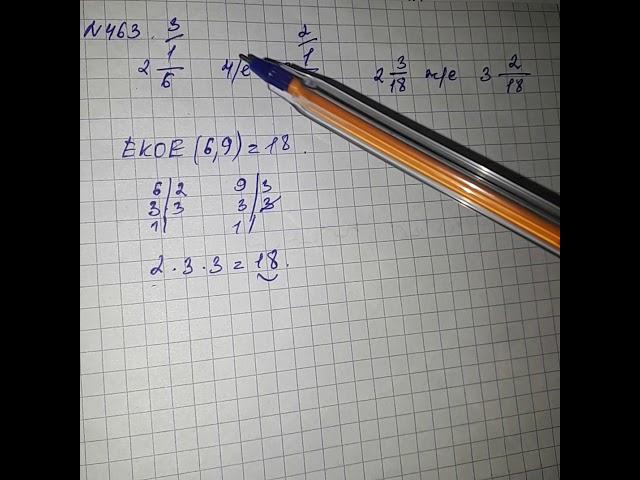 N463. 3/ 2/
2 1/6 ж/е 1 2 3/18 ж/е 3 2/18
ЕКОЕ (6,9) = 18.
6|2 9|3
3|3 3|3
1| 1|
2 · 3 · 3 = 18.